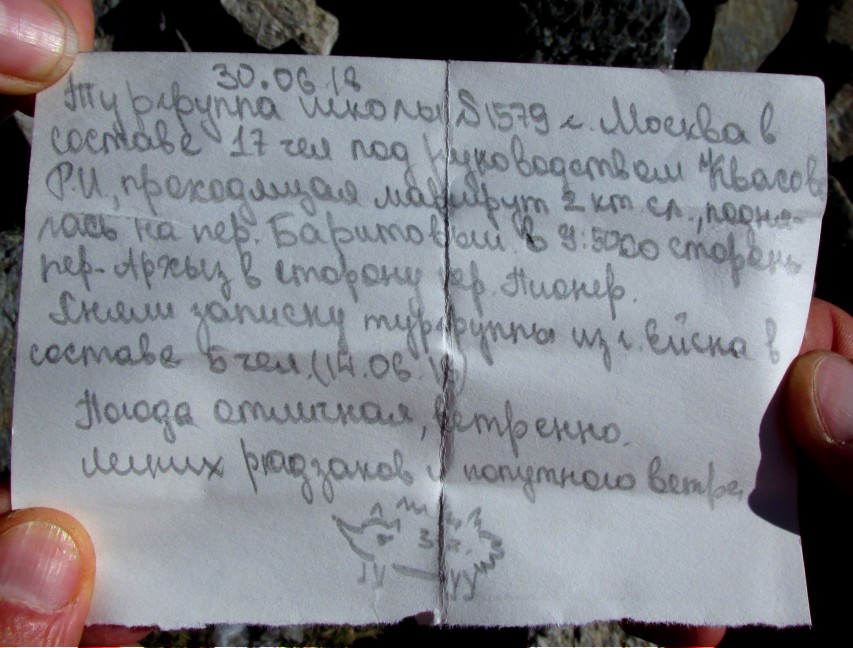 30.06.18
Тургруппа школы №1579 г. Москва в
составе 17 чел под руководством Квасов
Р.И, проходящая маршрут 2 кт сл., подня-
лась на пер. Баритовый в 9:50 со стороны
пер. Архыз в сторону пер. Пионер.
Сняли записку тургруппы из г. Ейска в
составе 5 чел. (14.06.18)
Погода отличная, ветренно.
Легких рюдзаков и попутного ветра